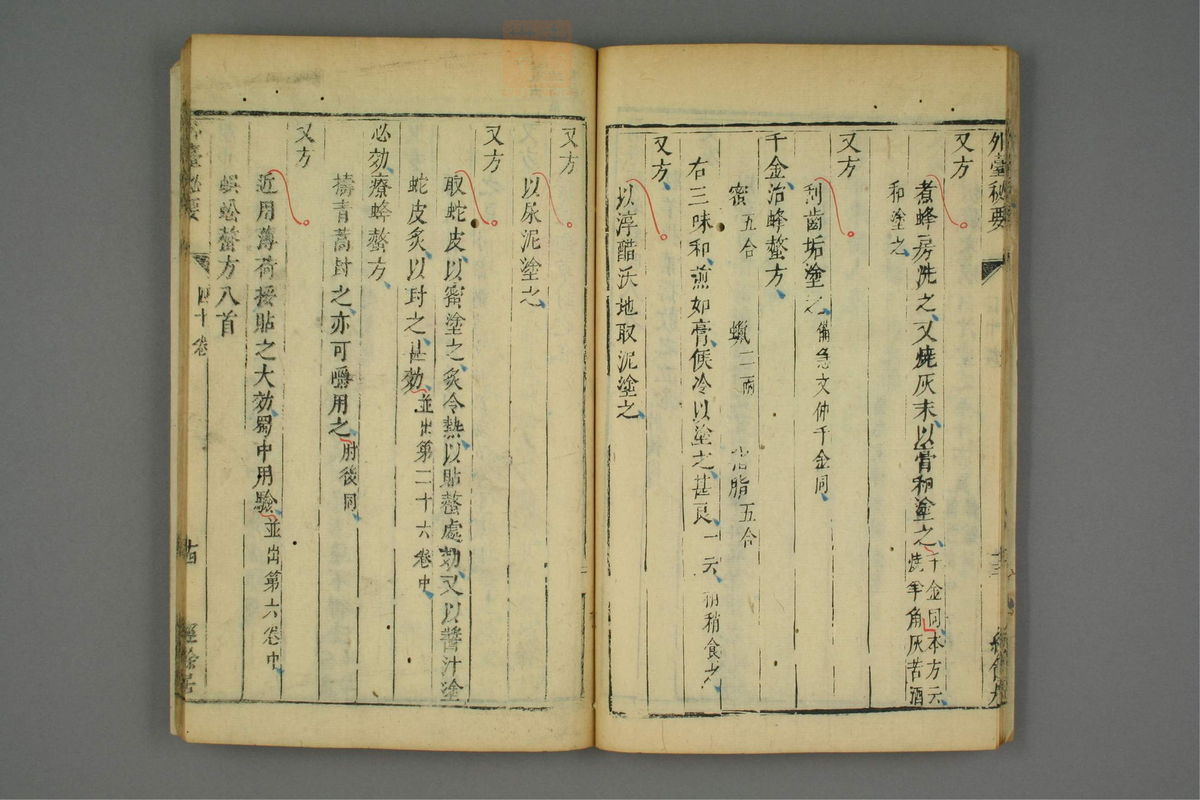 外臺秘要
又方
煮蜂房洗之又燒灰末以膏和塗之千金同本方云燒羊角灰苦酒
和塗之
又方
刮齒垢塗之備急文仲千金同
千金治蜂螫方
蜜五合 蠟二兩 猪脂五合
右三味和煎如膏候冷以塗之甚良一云稍稍食之
又方
以淳醋沃地取泥塗之
又方
以尿泥塗之
又方
取蛇皮以蜜塗之炙令熱以貼螫處効又以醬汁塗
蛇皮炙以封之甚効並出第二十六卷中
必効療蜂螫方
擣青蒿封之亦可嚼用之肘後同
又方
近用薄荷挼貼之大効蜀中用驗並出第六卷中
蜈蚣螫方八首
臺秘要 四十卷 經餘居